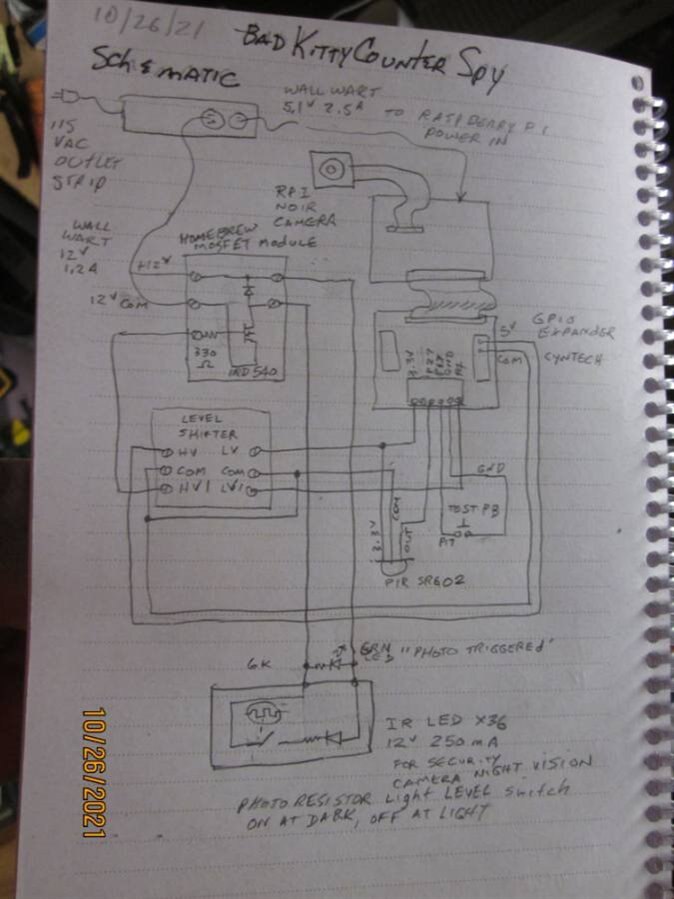 10/26/21
BAD KITTY COUNTER SPY
SCHEMATIC
WALL WART
5.1V 2.5A TO RASPBERRY PI
POWER IN
115
VAC
OUTLET
STRIP
RPI
NOIR
CAMERA
WALL
WART
12V
1.2A
HOMEBREW
MOSFET MODULE
+12V
12V COM
330
Ω
IRD 540
5V
COM
GPIO
EXPANDER
CYNTECH
3.3V
GND
LEVEL
SHIFTER
HV LV
COM COM
HV1 LV1
GND
TEST PB
3.3V
COM
OUT
PIR SR602
6K
GRN
LED
"PHOTO TRIGGERED"
IR LED X36
12V 250 mA
FOR SECURITY
CAMERA NIGHT VISION
PHOTO RESISTOR Light LEVEL Switch
ON AT DARK, OFF AT LIGHT
10/26/2021